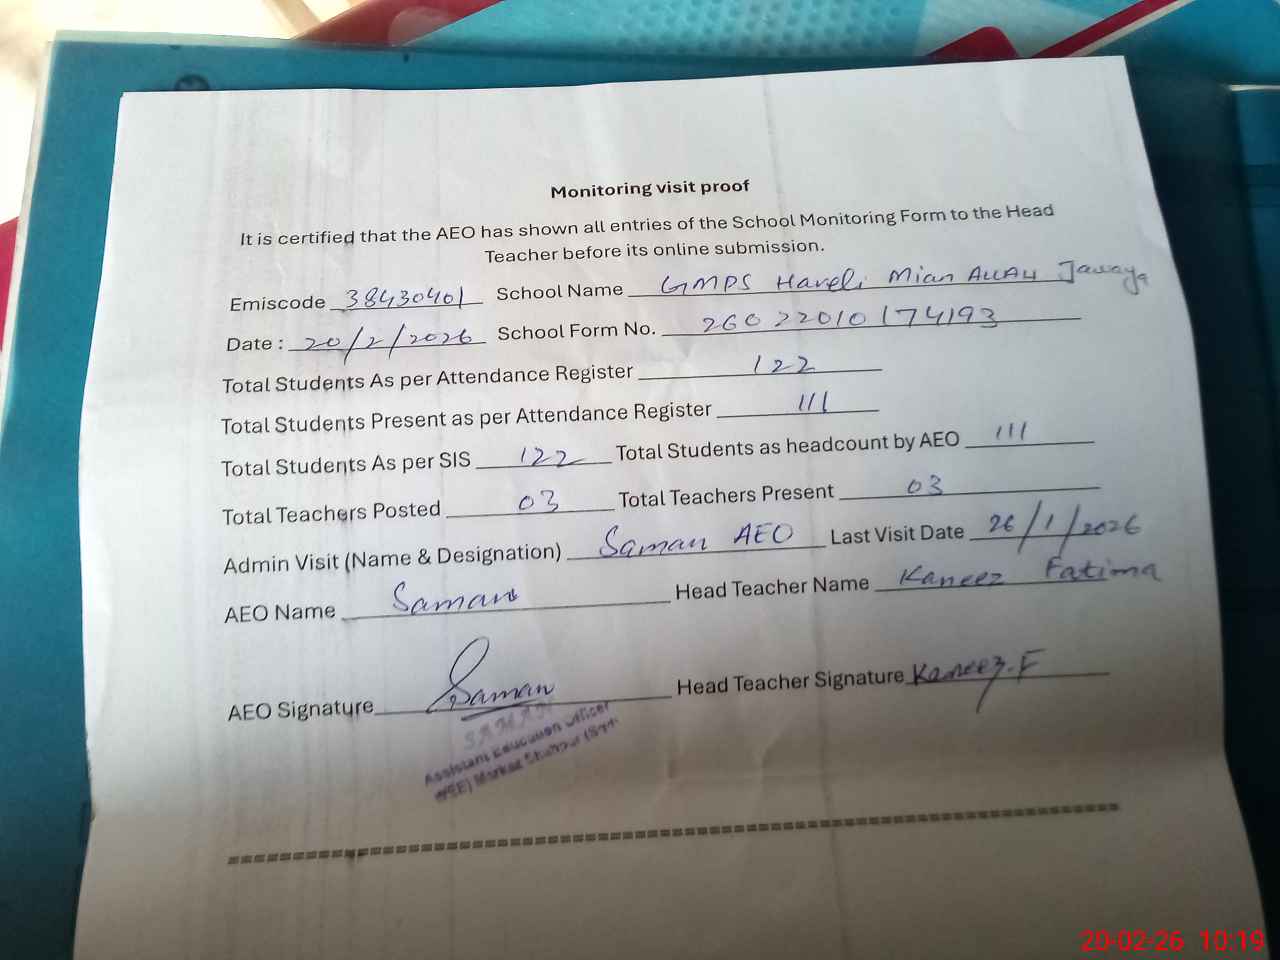 Monitoring visit proof
It is certified that the AEO has shown all entries of the School Monitoring Form to the Head
Teacher before its online submission.
Emiscode 38430401 School Name GMPS Haveli Mian Allah Jawaya
Date : 20/2/2026 School Form No. 26022010174193
Total Students As per Attendance Register 122
Total Students Present as per Attendance Register 111
Total Students As per SIS 122 Total Students as headcount by AEO 111
Total Teachers Posted 03 Total Teachers Present 03
Admin Visit (Name & Designation) Saman AEO Last Visit Date 26/1/2026
AEO Name Saman Head Teacher Name Kaneez Fatima
AEO Signature Saman Head Teacher Signature Kaneez.F
SAMAN
Assistant Education Officer
Markaz
20-02-26 10:19